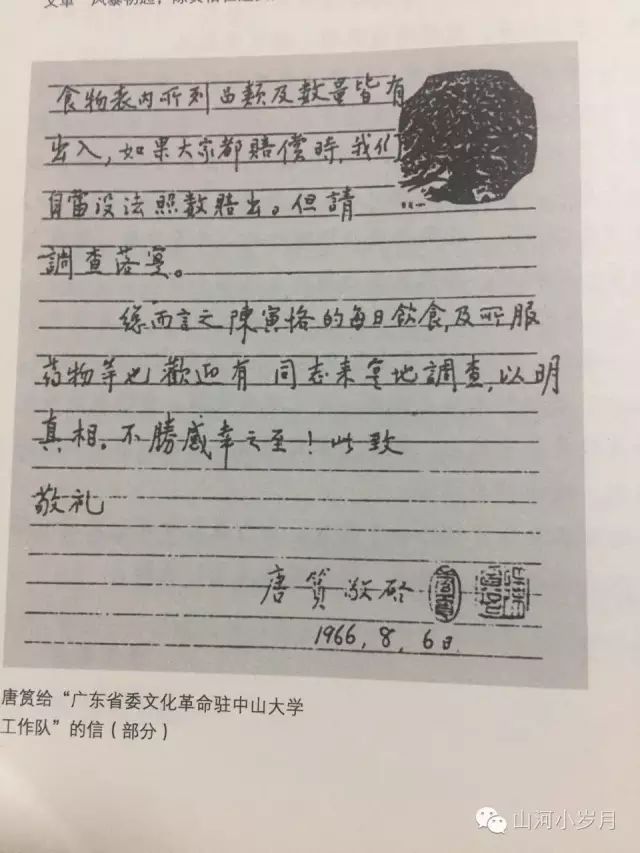 食物表内所列品類及数量皆有
出入,如果大家都賠償時,我们
自當设法照数賠出。但請
調查落实。
總而言之陳寅恪的每日飲食,及所服
药物等也歡迎有同志来实地調查,以明
真相。不勝感幸之至!此致
敬礼
唐篔敬啓
1966,8,6日
唐筼给“广东省委文化革命驻中山大学
工作队”的信(部分)
山河小岁月